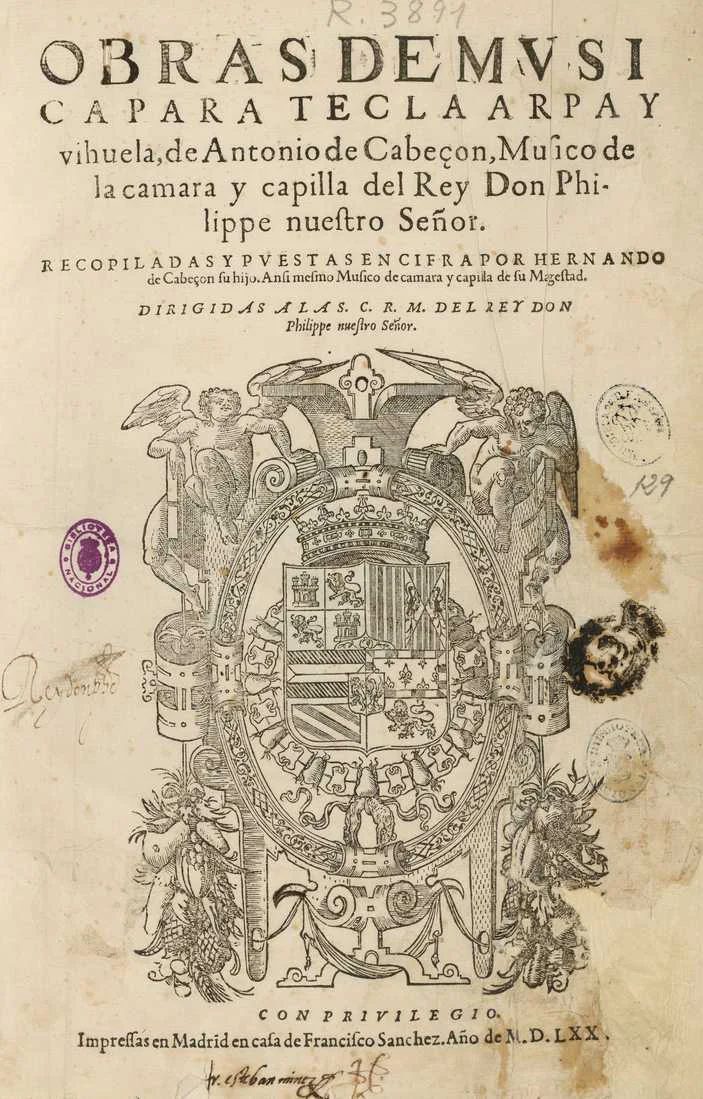 R. 3891
OBRAS DE MVSI
CA PARA TECLA ARPA Y
vihuela, de Antonio de Cabeçon, Musico de
la camara y capilla del Rey Don Phi-
lippe nuestro Señor.
RECOPILADAS Y PVESTAS EN CIFRA POR HERNANDO
de Cabeçon su hijo. Ansi mesmo Musico de camara y capilla de su Magestad.
DIRIGIDAS A LA S. C. R. M. DEL REY DON
Philippe nuestro Señor.
129
BIBLIOTECA
NACIONAL
CON PRIVILEGIO.
Impressas en Madrid en casa de Francisco Sanchez. Año de M.D.LXX.
fr. esteban